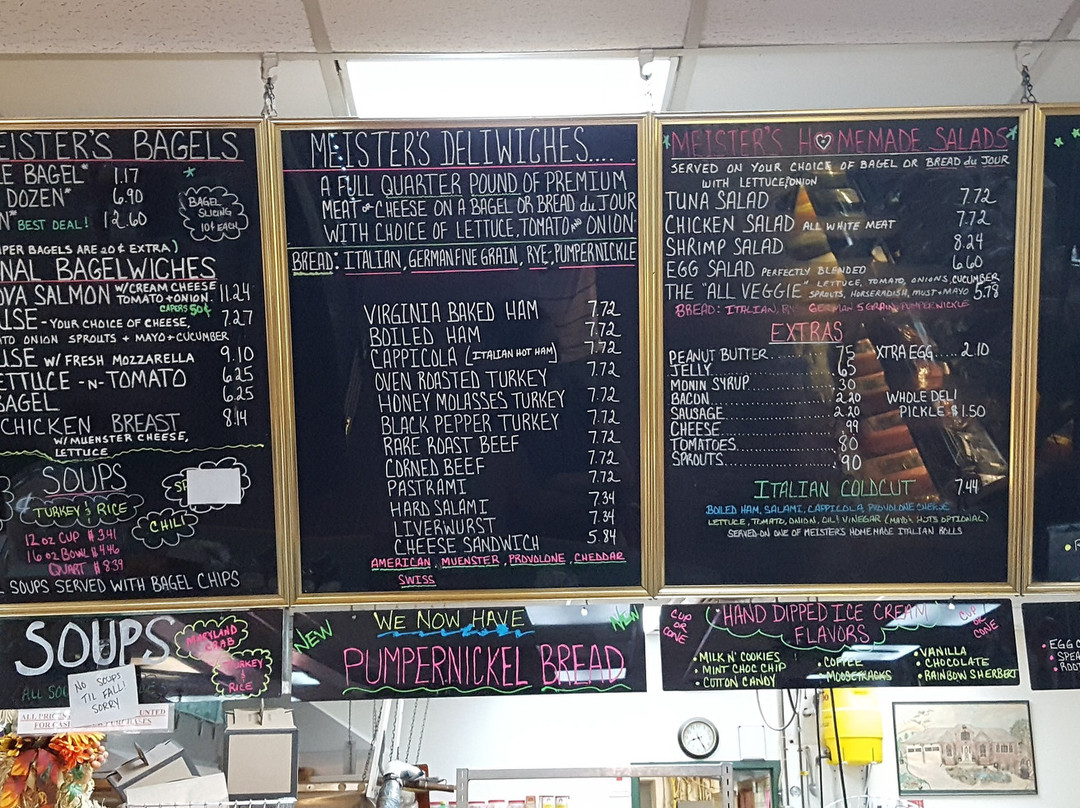 EISTER'S BAGELS
E BAGEL" 1.17
DOZEN" 6.90
N" BEST DEAL! 12.60
BAGEL
SLICING
10¢ EACH
PER BAGELS ARE 20¢ EXTRA)
NAL BAGELWICHES
OVA SALMON W/CREAM CHEESE TOMATO+ONION. 11.24
CAPERS 50¢
USE - YOUR CHOICE OF CHEESE, 7.27
TO ONION SPROUTS + MAYO+CUCUMBER
USE W/ FRESH MOZZARELLA 9.10
ETTUCE -N- TOMATO 6.25
BAGEL 6.25
CHICKEN BREAST 8.14
W/MUENSTER CHEESE,
LETTUCE
SOUPS
TURKEY & RICE
SP
CHILI
12 OZ CUP $3.41
16 OZ BOWL $4.46
QUART $8.39
SOUPS SERVED WITH BAGEL CHIPS
MEISTER'S DELIWICHES....
A FULL QUARTER POUND OF PREMIUM
MEAT or CHEESE ON A BAGEL OR BREAD du JOUR
WITH CHOICE OF LETTUCE, TOMATO AND ONION
BREAD: ITALIAN, GERMAN FIVE GRAIN, RYE, PUMPERNICKLE
VIRGINIA BAKED HAM 7.72
BOILED HAM 7.72
CAPPICOLA (ITALIAN HOT HAM) 7.72
OVEN ROASTED TURKEY 7.72
HONEY MOLASSES TURKEY 7.72
BLACK PEPPER TURKEY 7.72
RARE ROAST BEEF 7.72
CORNED BEEF 7.72
PASTRAMI 7.72
HARD SALAMI 7.34
LIVERWURST 7.34
CHEESE SANDWICH 5.84
AMERICAN, MUENSTER, PROVOLONE, CHEDDAR
SWISS
MEISTER'S HOMEMADE SALADS
SERVED ON YOUR CHOICE OF BAGEL OR BREAD du JOUR
WITH LETTUCE/ONION
TUNA SALAD 7.72
CHICKEN SALAD ALL WHITE MEAT 7.72
SHRIMP SALAD 8.24
EGG SALAD PERFECTLY BLENDED 6.60
THE "ALL VEGGIE" LETTUCE, TOMATO, ONIONS, CUCUMBER
SPROUTS, HORSERADISH, MUST+MAYO 5.78
BREAD: ITALIAN, RY GERMAN 5 GRAIN, PUMPERNICKLE
EXTRAS
PEANUT BUTTER. 75
JELLY 65
MONIN SYRUP 30
BACON 2.20
SAUSAGE 2.20
CHEESE .99
TOMATOES 80
SPROUTS 90
XTRA EGG..... 2.10
WHOLE DELI
PICKLE $1.50
ITALIAN COLDCUT 7.44
BOILED HAM, SALAMI, CAPPICOLA, PROVOLONE CHEESE
LETTUCE, TOMATO, ONION, OIL & VINEGAR (MAYO & HOTS OPTIONAL)
SERVED ON ONE OF MEISTER'S HOMEMADE ITALIAN ROLLS
SOUPS
MARYLAND
CRAB
TURKEY
&
RICE
ALL SOU
NO SOUPS
TIL FALL!
SORRY
NEW
WE NOW HAVE
NEW
PUMPERNICKEL BREAD
CUP OR CONE
HAND DIPPED ICE CREAM
FLAVORS
CUP OR CONE
• MILK N' COOKIES
• MINT CHOC CHIP
• COTTON CANDY
• COFFEE
• MOOSETRACKS
• VANILLA
• CHOCOLATE
• RAINBOW SHERBERT
• EGG
• SPEA
• ROOT